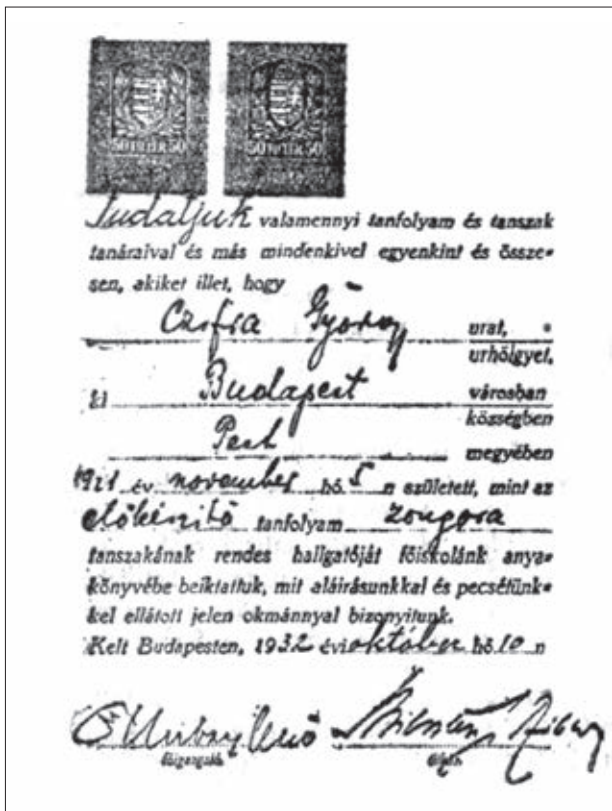 50 50
50 50
Tudatjuk valamennyi tanfolyam és tanszak
tanáraival és más mindenkivel egyenkint és össze-
sen, akiket illet, hogy
Cziffra György urat,
urhölgyet,
ki Budapest városban
községben
Pest megyében
1921 év november hó 5 n született, mint az
előkészitő tanfolyam zongora
tanszakának rendes hallgatóját főiskolánk anya-
könyvébe beiktattuk, mit aláirásunkkal és pecsétünk-
kel ellátott jelen okmánnyal bizonyitunk.
Kelt Budapesten, 1932 évi október hó 10 n
főigazgató